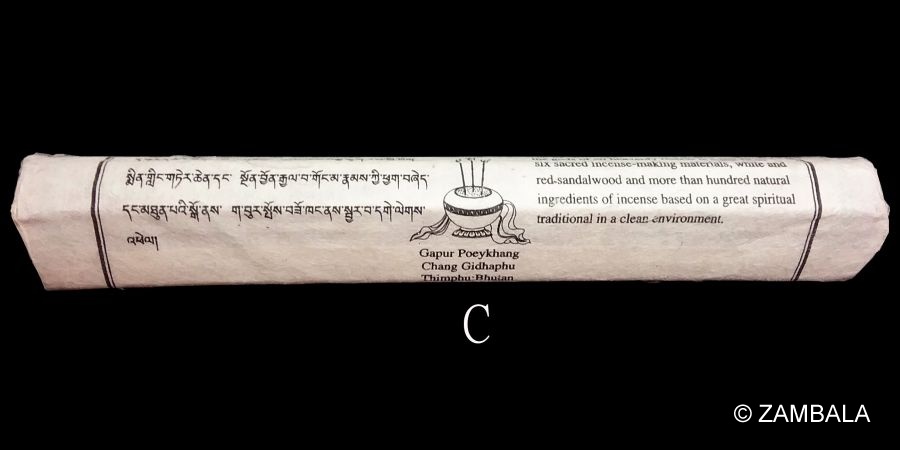 སྨིན་གླིང་གཏེར་ཆེན་དང་ སྔོན་བྱོན་རྒྱལ་བ་གོང་མ་རྣམས་ཀྱི་ཕྱག་བཞེད་
དང་མཐུན་པའི་སྒོ་ནས་ ག་བུར་སྤོས་བཟོ་ཁང་ནས་སྦྱར་བ་དགེ་ལེགས་
འཕེལ།
Gapur Poeykhang
Chang Gidhaphu
Thimphu:Bhutan
six sacred incense-making materials, white and
red-sandalwood and more than hundred natural
ingredients of incense based on a great spiritual
traditional in a clean environment.
C
© ZAMBALA